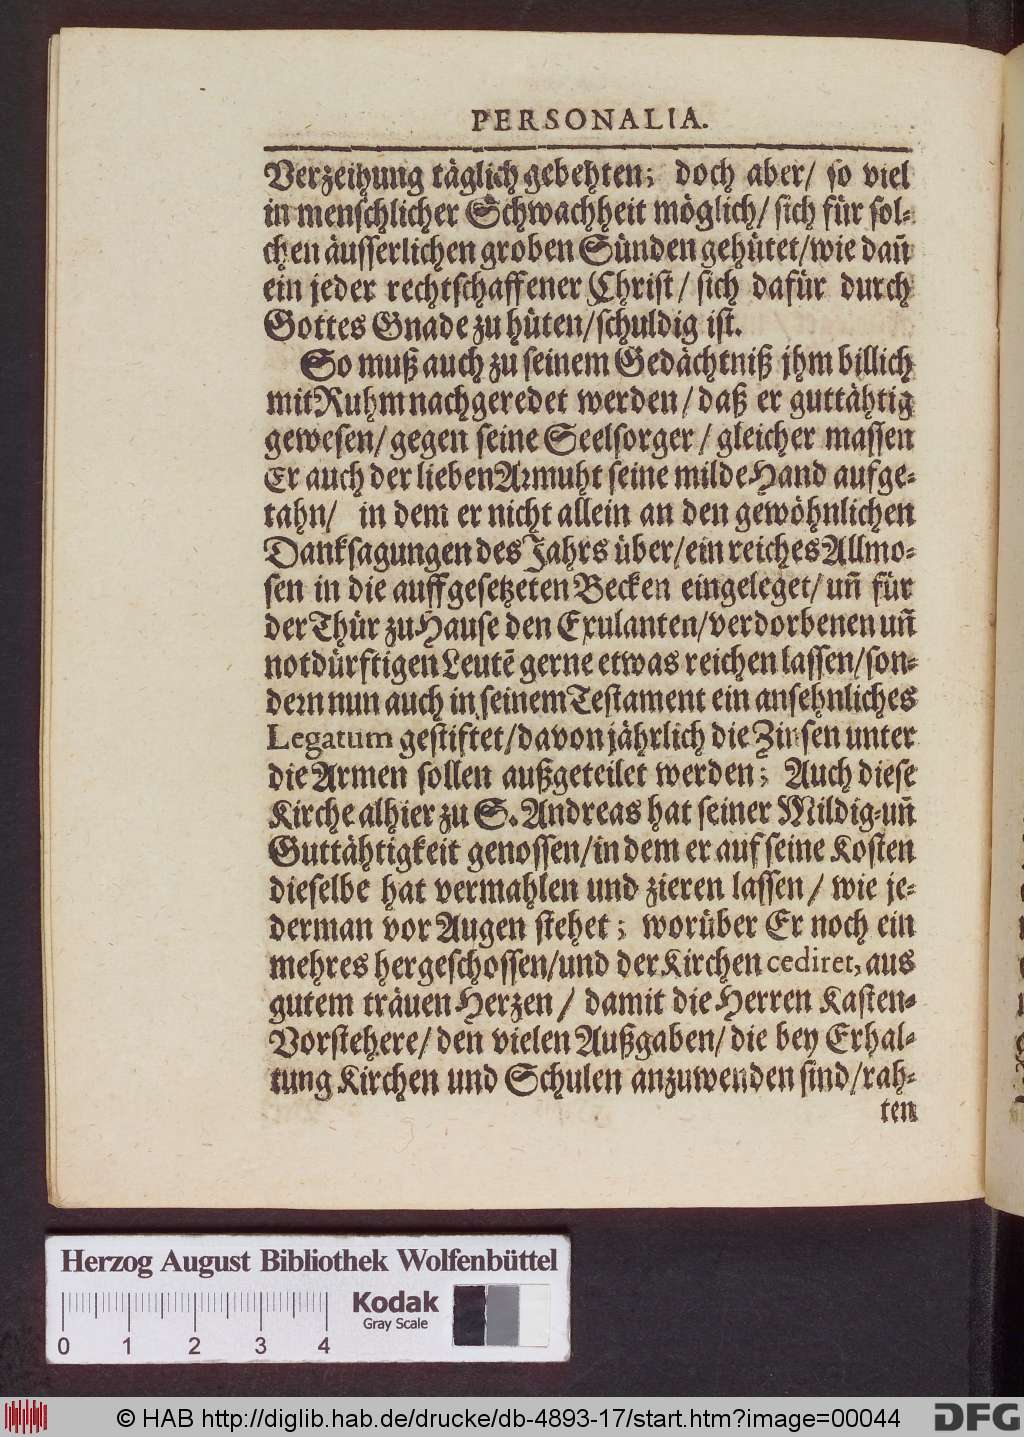 PERSONALIA.
Verzeihung täglich gebehten; doch aber/ so viel
in menschlicher Schwachheit möglich/ sich für sol-
chen äusserlichen groben Sünden gehütet/wie dañ
ein jeder rechtschaffener Christ/ sich dafür durch
Gottes Gnade zu hüten/schuldig ist.
So muß auch zu seinem Gedächtniß jhm billich
mit Ruhm nachgeredet werden/ daß er guttähtig
gewesen/ gegen seine Seelsorger/ gleicher massen
Er auch der lieben Armuht seine milde Hand aufge-
tahn/ in dem er nicht allein an den gewöhnlichen
Danksagungen des Jahrs über/ein reiches Allmo-
sen in die auffgesetzeten Becken eingeleget/ uñ für
der Thür zu Hause den Exulanten/verdorbenen uñ
notdürftigen Leutē gerne etwas reichen lassen/son-
dern nun auch in seinem Testament ein ansehnliches
Legatum gestiftet/davon jährlich die Zinsen unter
die Armen sollen außgeteilet werden; Auch diese
Kirche alhier zu S. Andreas hat seiner Mildig-uñ
Guttähtigkeit genossen/in dem er auf seine Kosten
dieselbe hat vermahlen und zieren lassen/ wie je-
derman vor Augen stehet; worüber Er noch ein
mehres hergeschossen/und der Kirchen cediret, aus
gutem träuen Herzen/ damit die Herren Kasten-
Vorstehere/ den vielen Außgaben/ die bey Erhal-
tung Kirchen und Schulen anzuwenden sind/rah-
ten
Herzog August Bibliothek Wolfenbüttel
Kodak
Gray Scale
0 1 2 3 4
© HAB http://diglib.hab.de/drucke/db-4893-17/start.htm?image=00044
DFG